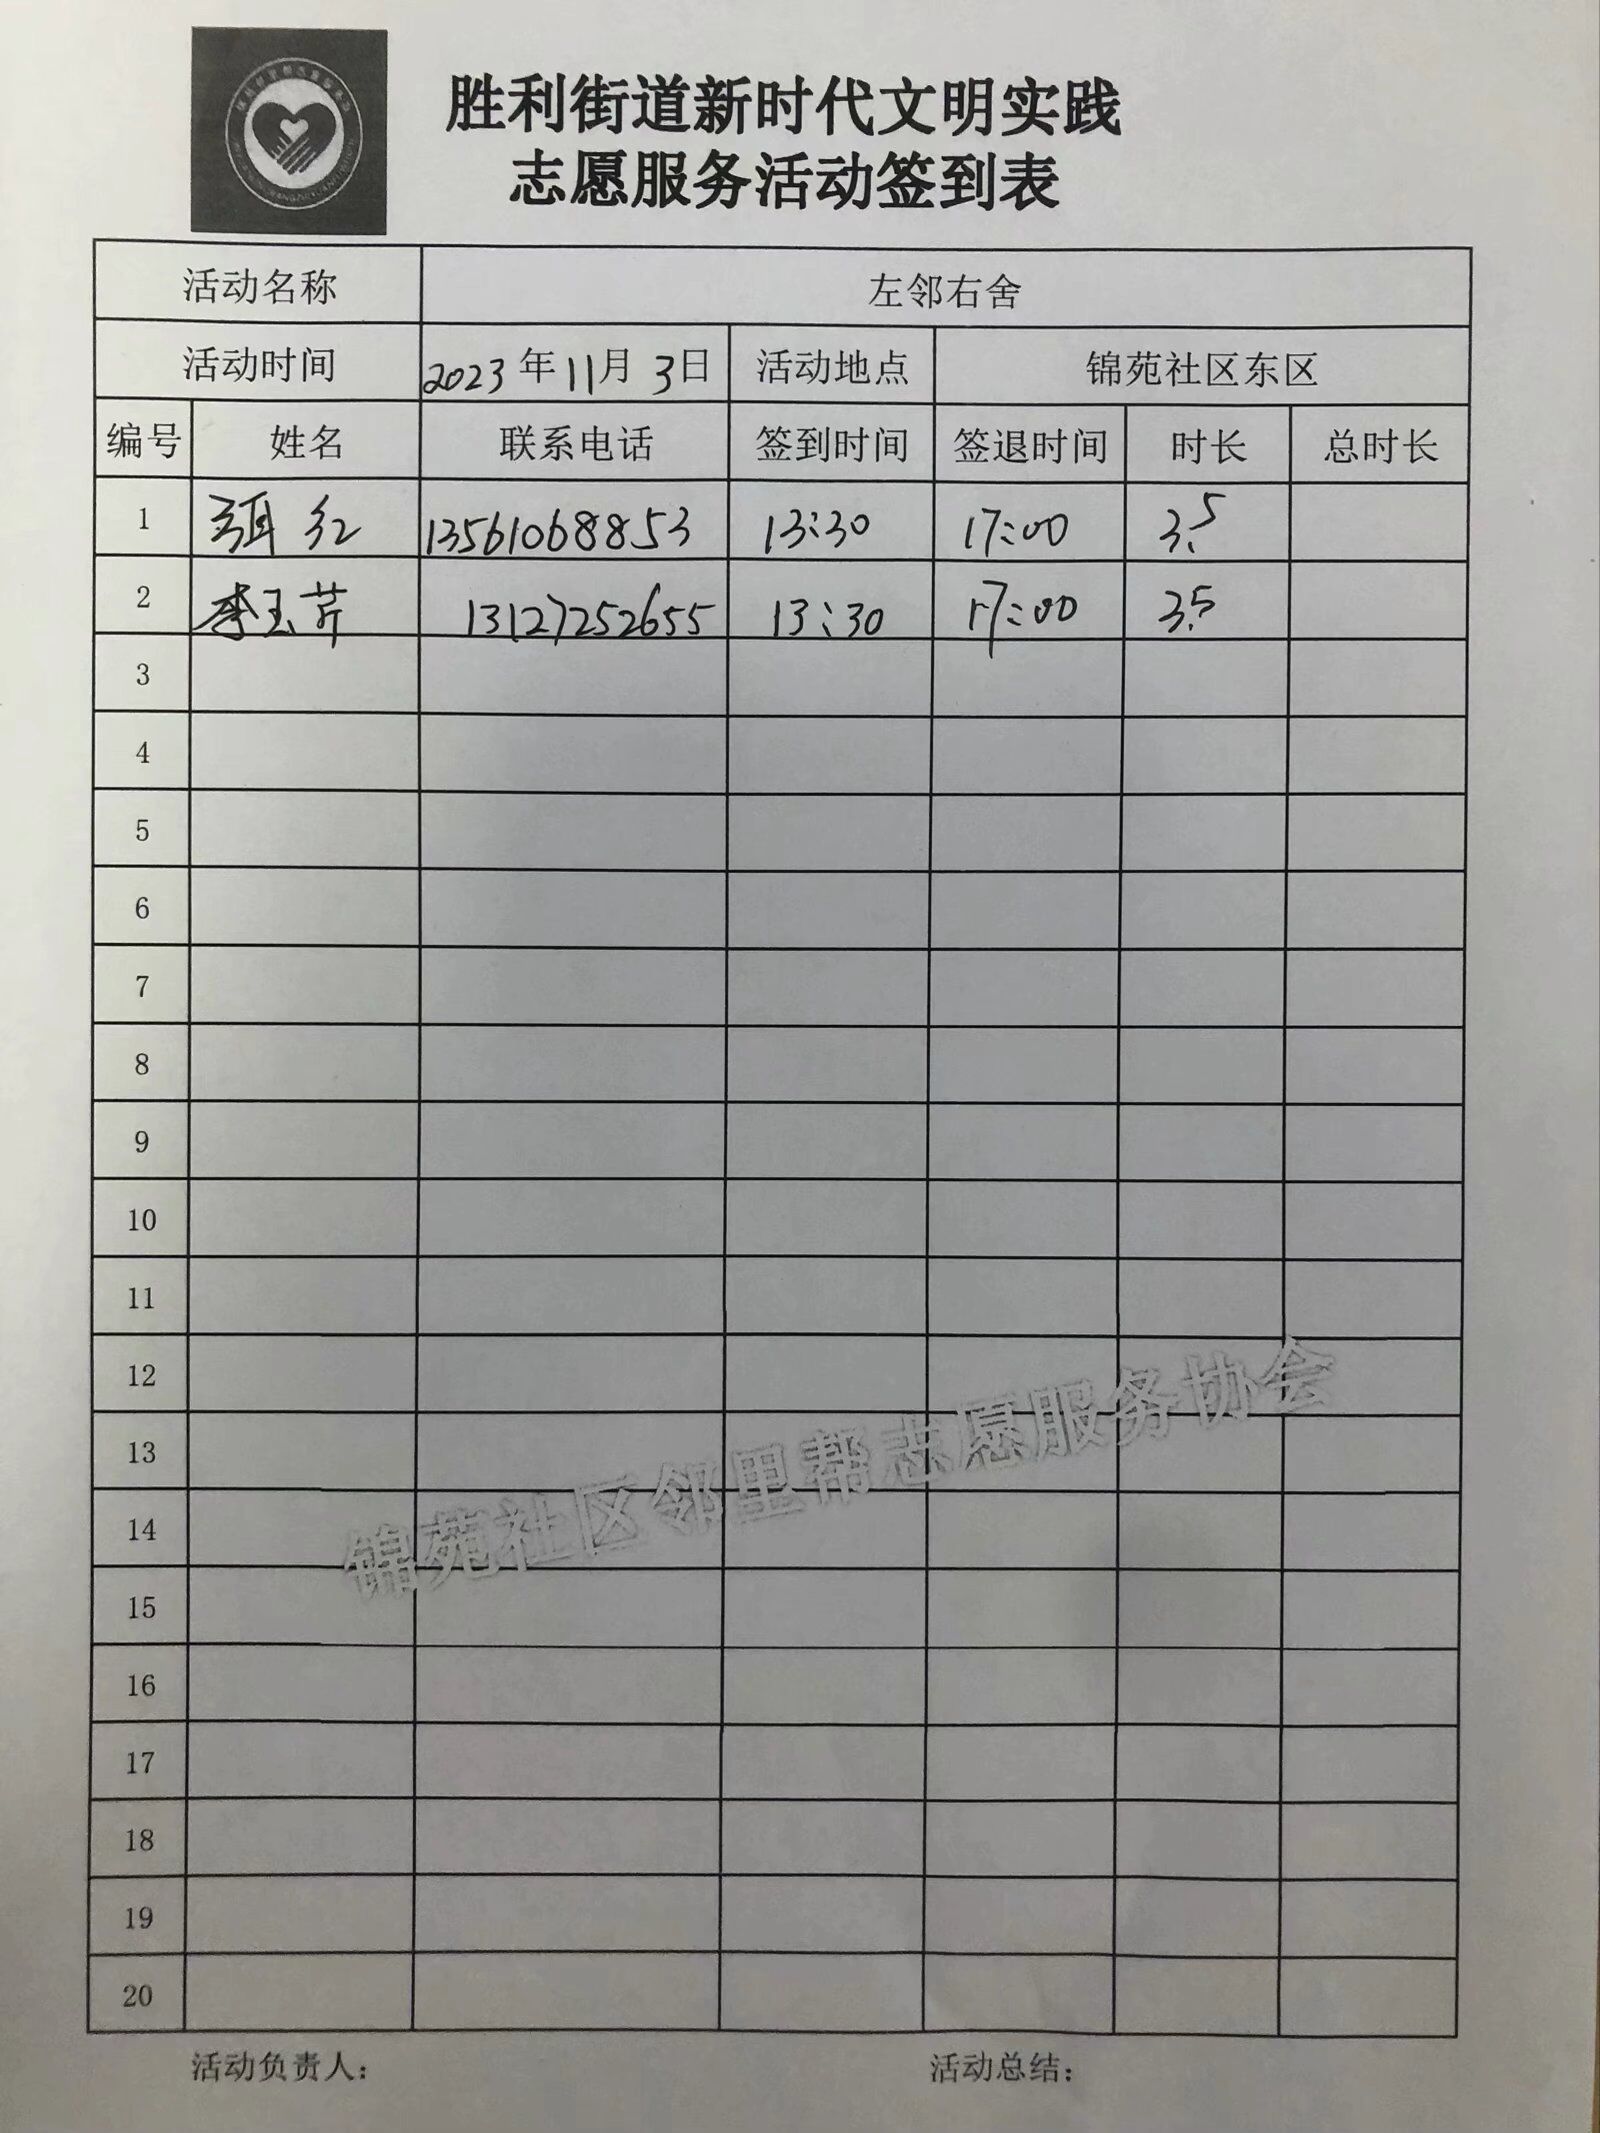 胜利街道新时代文明实践
志愿服务活动签到表
活动名称 左邻右舍
活动时间 2023年11月3日 活动地点 锦苑社区东区
编号 姓名 联系电话 签到时间 签退时间 时长 总时长
1 红 13561068853 13:30 17:00 3.5
2 李玉芹 13127252655 13:30 17:00 3.5
3
4
5
6
7
8
9
10
11
12
13
14
15
16
17
18
19
20
锦苑社区邻里帮志愿服务协会
活动负责人: 活动总结: